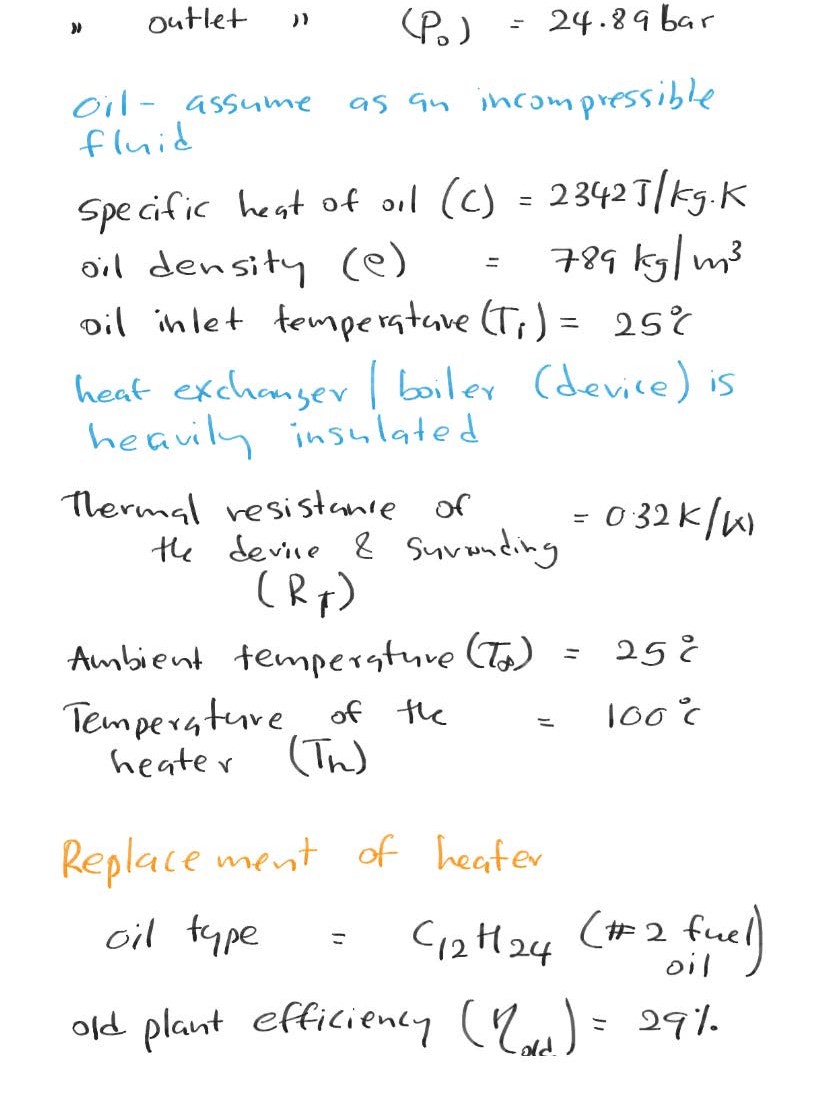 " outlet " (P₀) = 24.89 bar
oil - assume as an incompressible
fluid
Specific heat of oil (C) = 2342 J/kg.K
oil density (e) = 789 kg/m³
oil inlet temperature (T₁) = 25°C
heat exchanger | boiler (device) is
heavily insulated
Thermal resistance of = 0.32 K/W
the device & Surrounding
(R_T)
Ambient temperature (T∞) = 25°C
Temperature of the = 100°C
heater (Th)
Replacement of heater
oil type = C₁₂H₂₄ (#2 fuel
oil)
old plant efficiency (η_old) = 29%